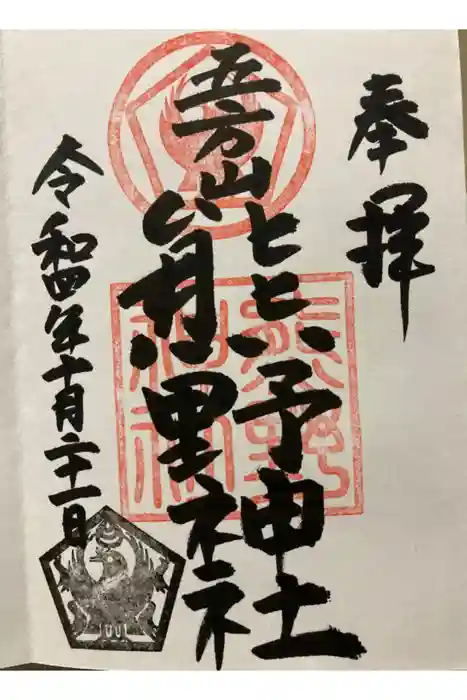 奉拝
五方山
熊野神社
熊野
神社
令和四年十月二十一日